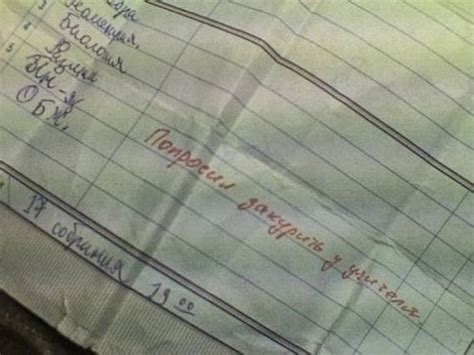 3 Геометрия
4 Биология
5 Физика
Ин-яз
ОБЖ
Попросил закурить у учителя.
17 собрания 19 00